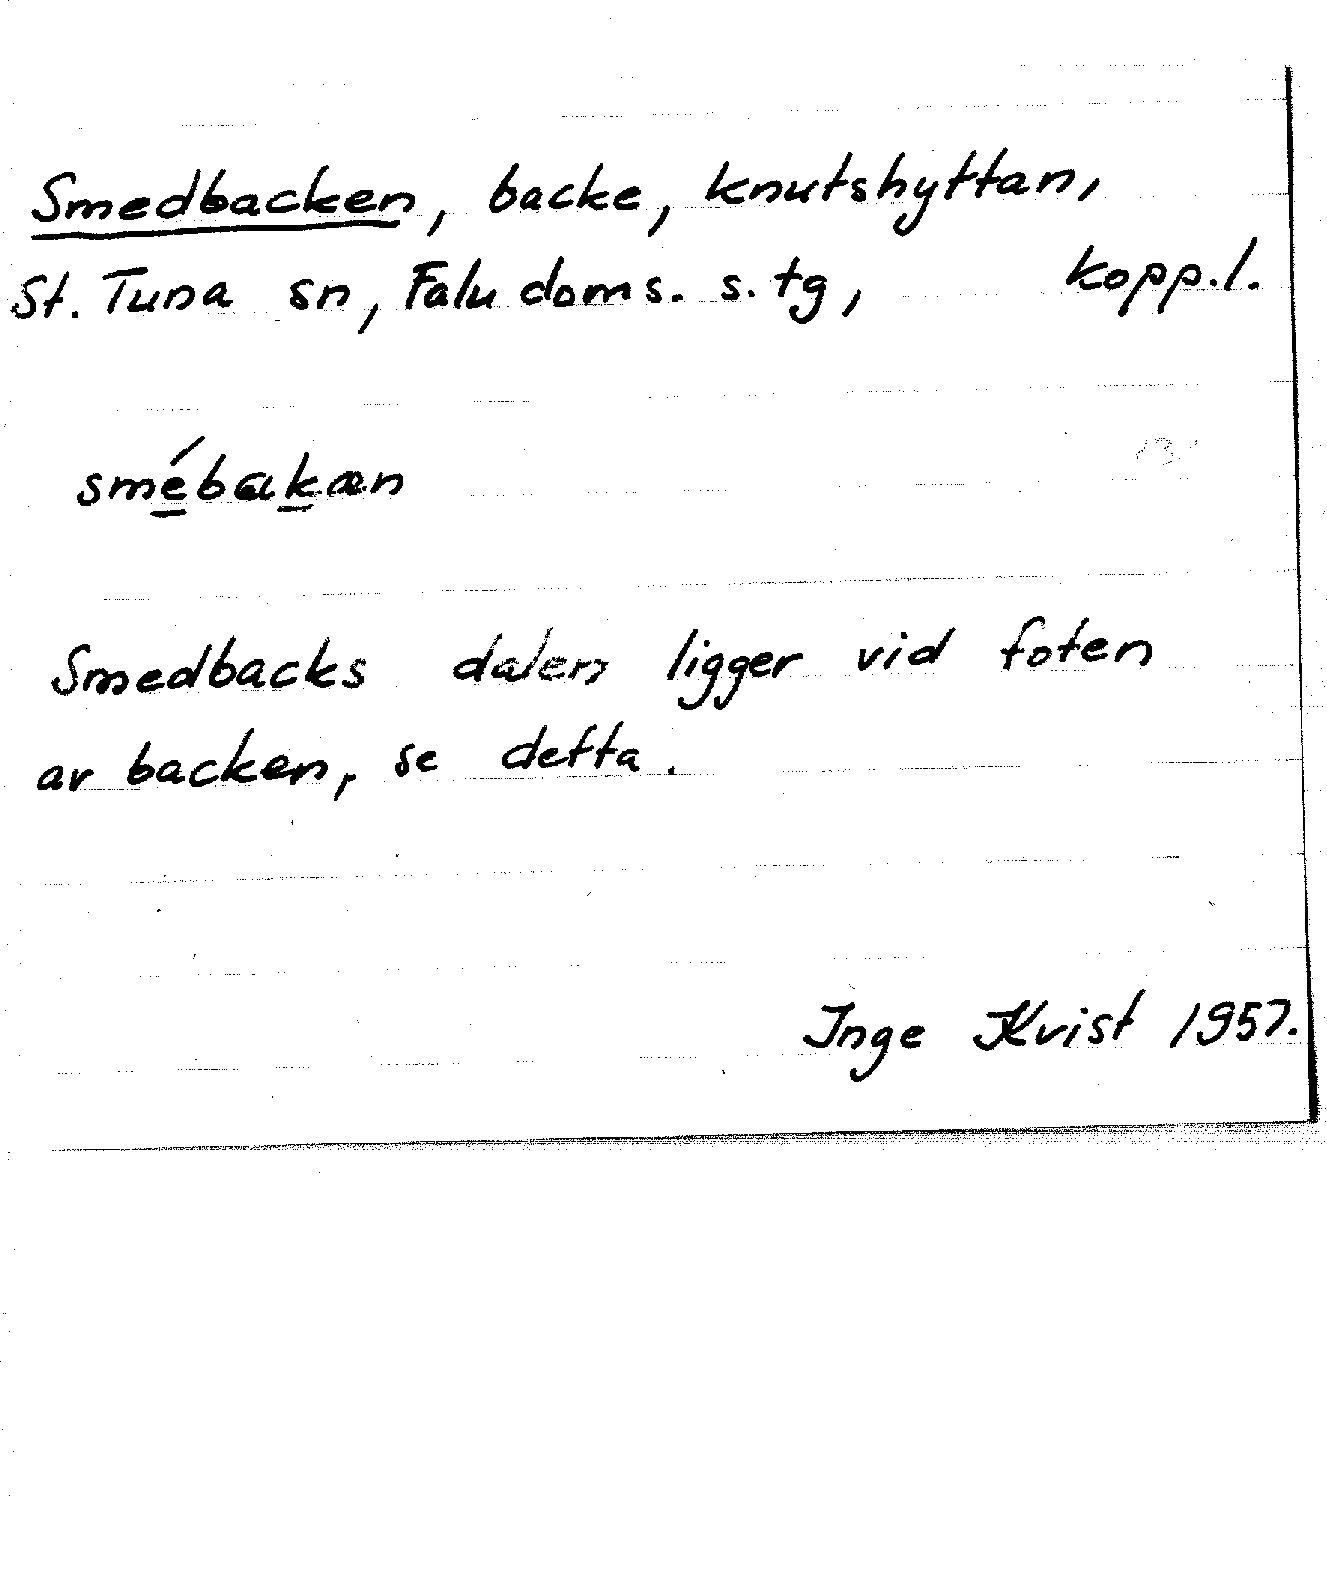 Smedbacken, backe, knutshyttan,
St. Tuna sn, Falu doms. s. tg, kopp.l.
smébakæn
Smedbacks dalen ligger vid foten
av backen, se detta.
Inge Kvist 1957.